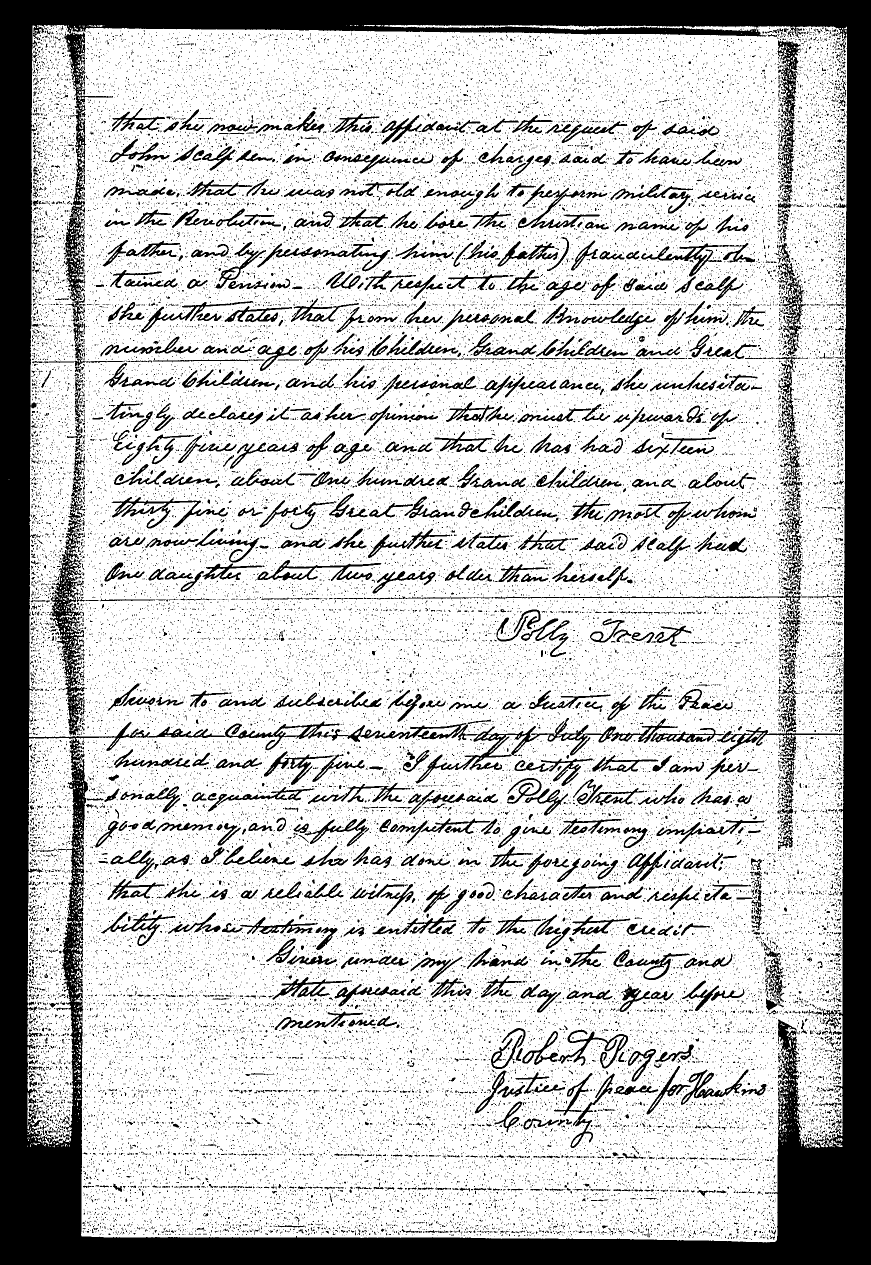 that she now makes this affidavit at the request of said
John Scalf sen. in consequence of charges said to have been
made, that he was not old enough to perform military service
in the Revolution, and that he bore the christian name of his
father, and by personating him (his father) fraudulently ob-
-tained a Pension - With respect to the age of said Scalf
she further states, that from her personal Knowledge of him, the
number and age of his Children, Grand Children and Great
Grand Children, and his personal appearance, she unhesita-
-tingly declares it as her opinion that he must be upwards of
Eighty five years of age and that he has had sixteen
children, about One hundred Grand children, and about
thirty five or forty Great Grandchildren, the most of whom
are now living - and she further states that said Scalf had
One daughter about two years older than herself.
Polly Trent
Sworn to and subscribed before me a Justice of the Peace
for said County this seventeenth day of July One thousand eight
hundred and forty five - I further certify that I am per-
sonally acquainted with the aforesaid Polly Trent who has a
good memory, and is fully competent to give testimony imparti-
-ally, as I believe she has done in the foregoing Affidavit;
that she is a reliable witness, of good character and respecta-
bility whose testimony is entitled to the highest credit
Given under my hand in the County and
State aforesaid this the day and year before
mentioned.
Robert Rogers
Justice of peace for Hawkins
County